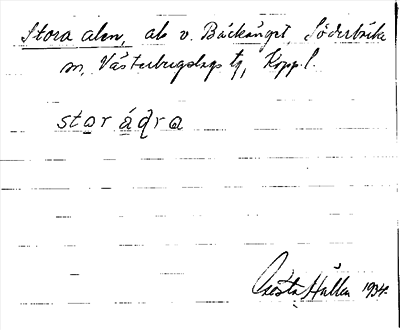 Stora alen, ak v. Bäckänget, Söderbärke
sn, Västerbergslags tg, Kopp. l.
stor áqra
Gösta Hallén 1934.